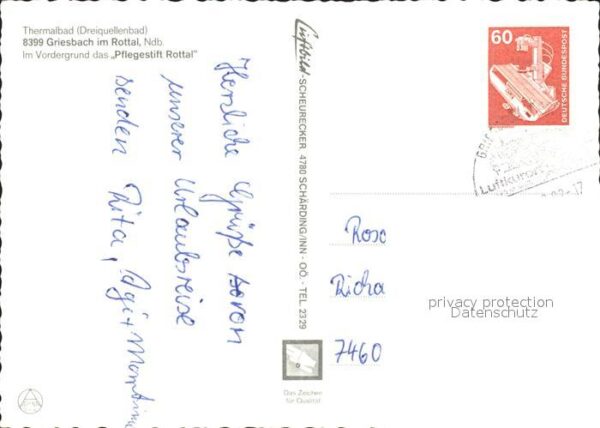 Thermalbad (Dreiquellenbad)
8399 Griesbach im Rottal, Ndb.
Im Vordergrund das „Pflegestift Rottal"
Herzliche Grüße von
unserer Urlaubsreise
senden Rita,
Luftbild-SCHEURECKER, 4780 SCHÄRDING/INN - OÖ. - TEL. 2329
60
DEUTSCHE BUNDESPOST
Luftkuror
Rosc
Richa
7460
privacy protection
Datenschutz
Das Zeichen
für Qualität